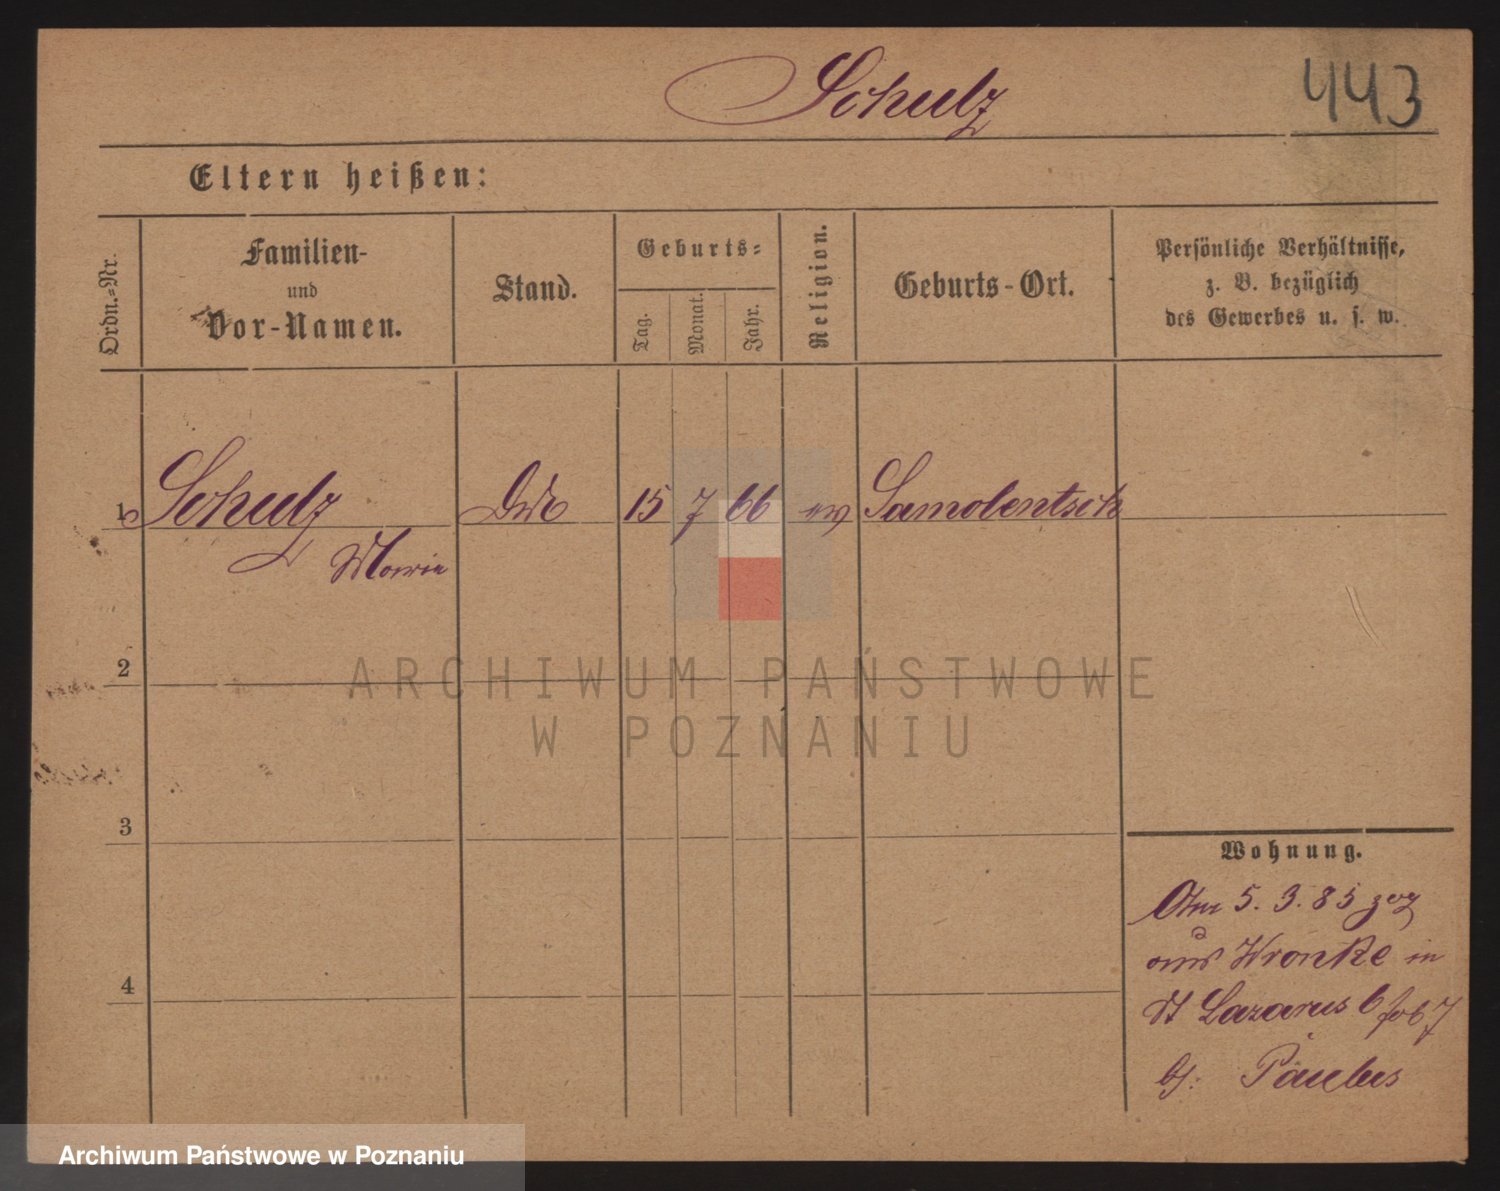 Schulz
443
Eltern heißen:
Ordn.=Nr.
Familien-
und
Vor-Namen.
Stand.
Geburts=
Tag.
Monat.
Jahr.
Religion.
Geburts-Ort.
Persönliche Verhältnisse,
z. B. bezüglich
des Gewerbes u. s. w.
1 Schulz 15 7 66 ev Samolentsch
Marie
2
ARCHIWUM PAŃSTWOWE
W POZNANIU
3
Wohnung.
Am 5. 3. 85 zog
aus Wronke in
St Lazarus 6
4
b/: Paulus
Archiwum Państwowe w Poznaniu